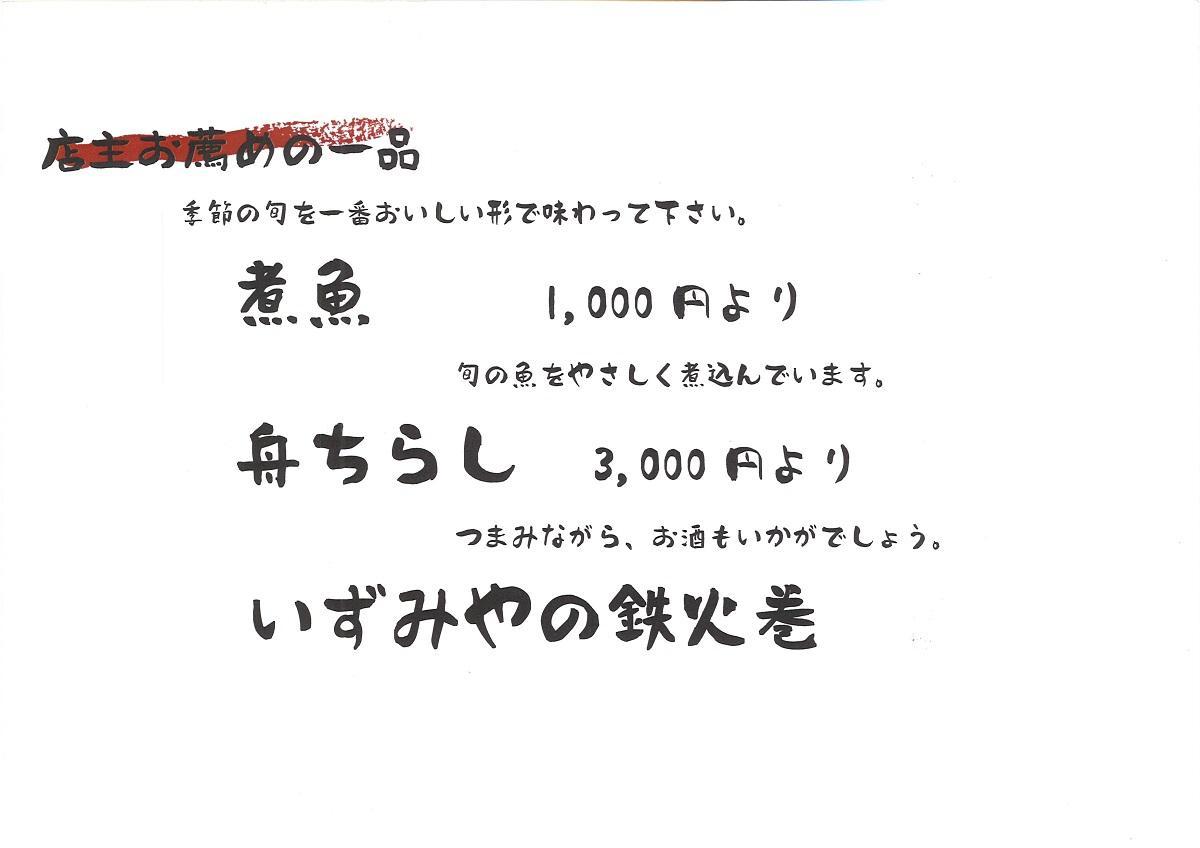 店主お薦めの一品
季節の旬を一番おいしい形で味わって下さい。
煮魚 1,000円より
旬の魚をやさしく煮込んでいます。
舟ちらし 3,000円より
つまみながら、お酒もいかがでしょう。
いずみやの鉄火巻